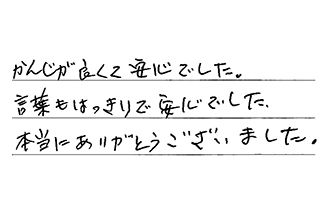 かんじが良くて安心でした。
言葉もはっきりで安心でした、
本当にありがとうございました。